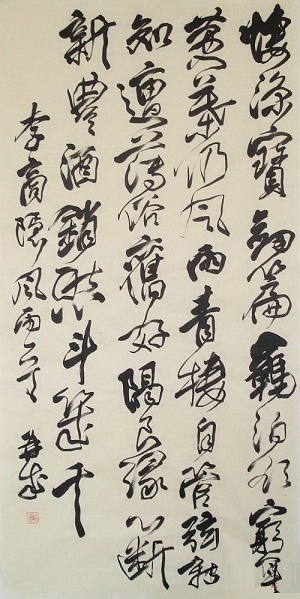 悽涼寶劍篇羈泊欲窮年
黃葉仍風雨青樓自管弦新
知遭薄俗舊好隔良緣心斷
新豐酒銷愁斗幾千
李商隱風雨一首